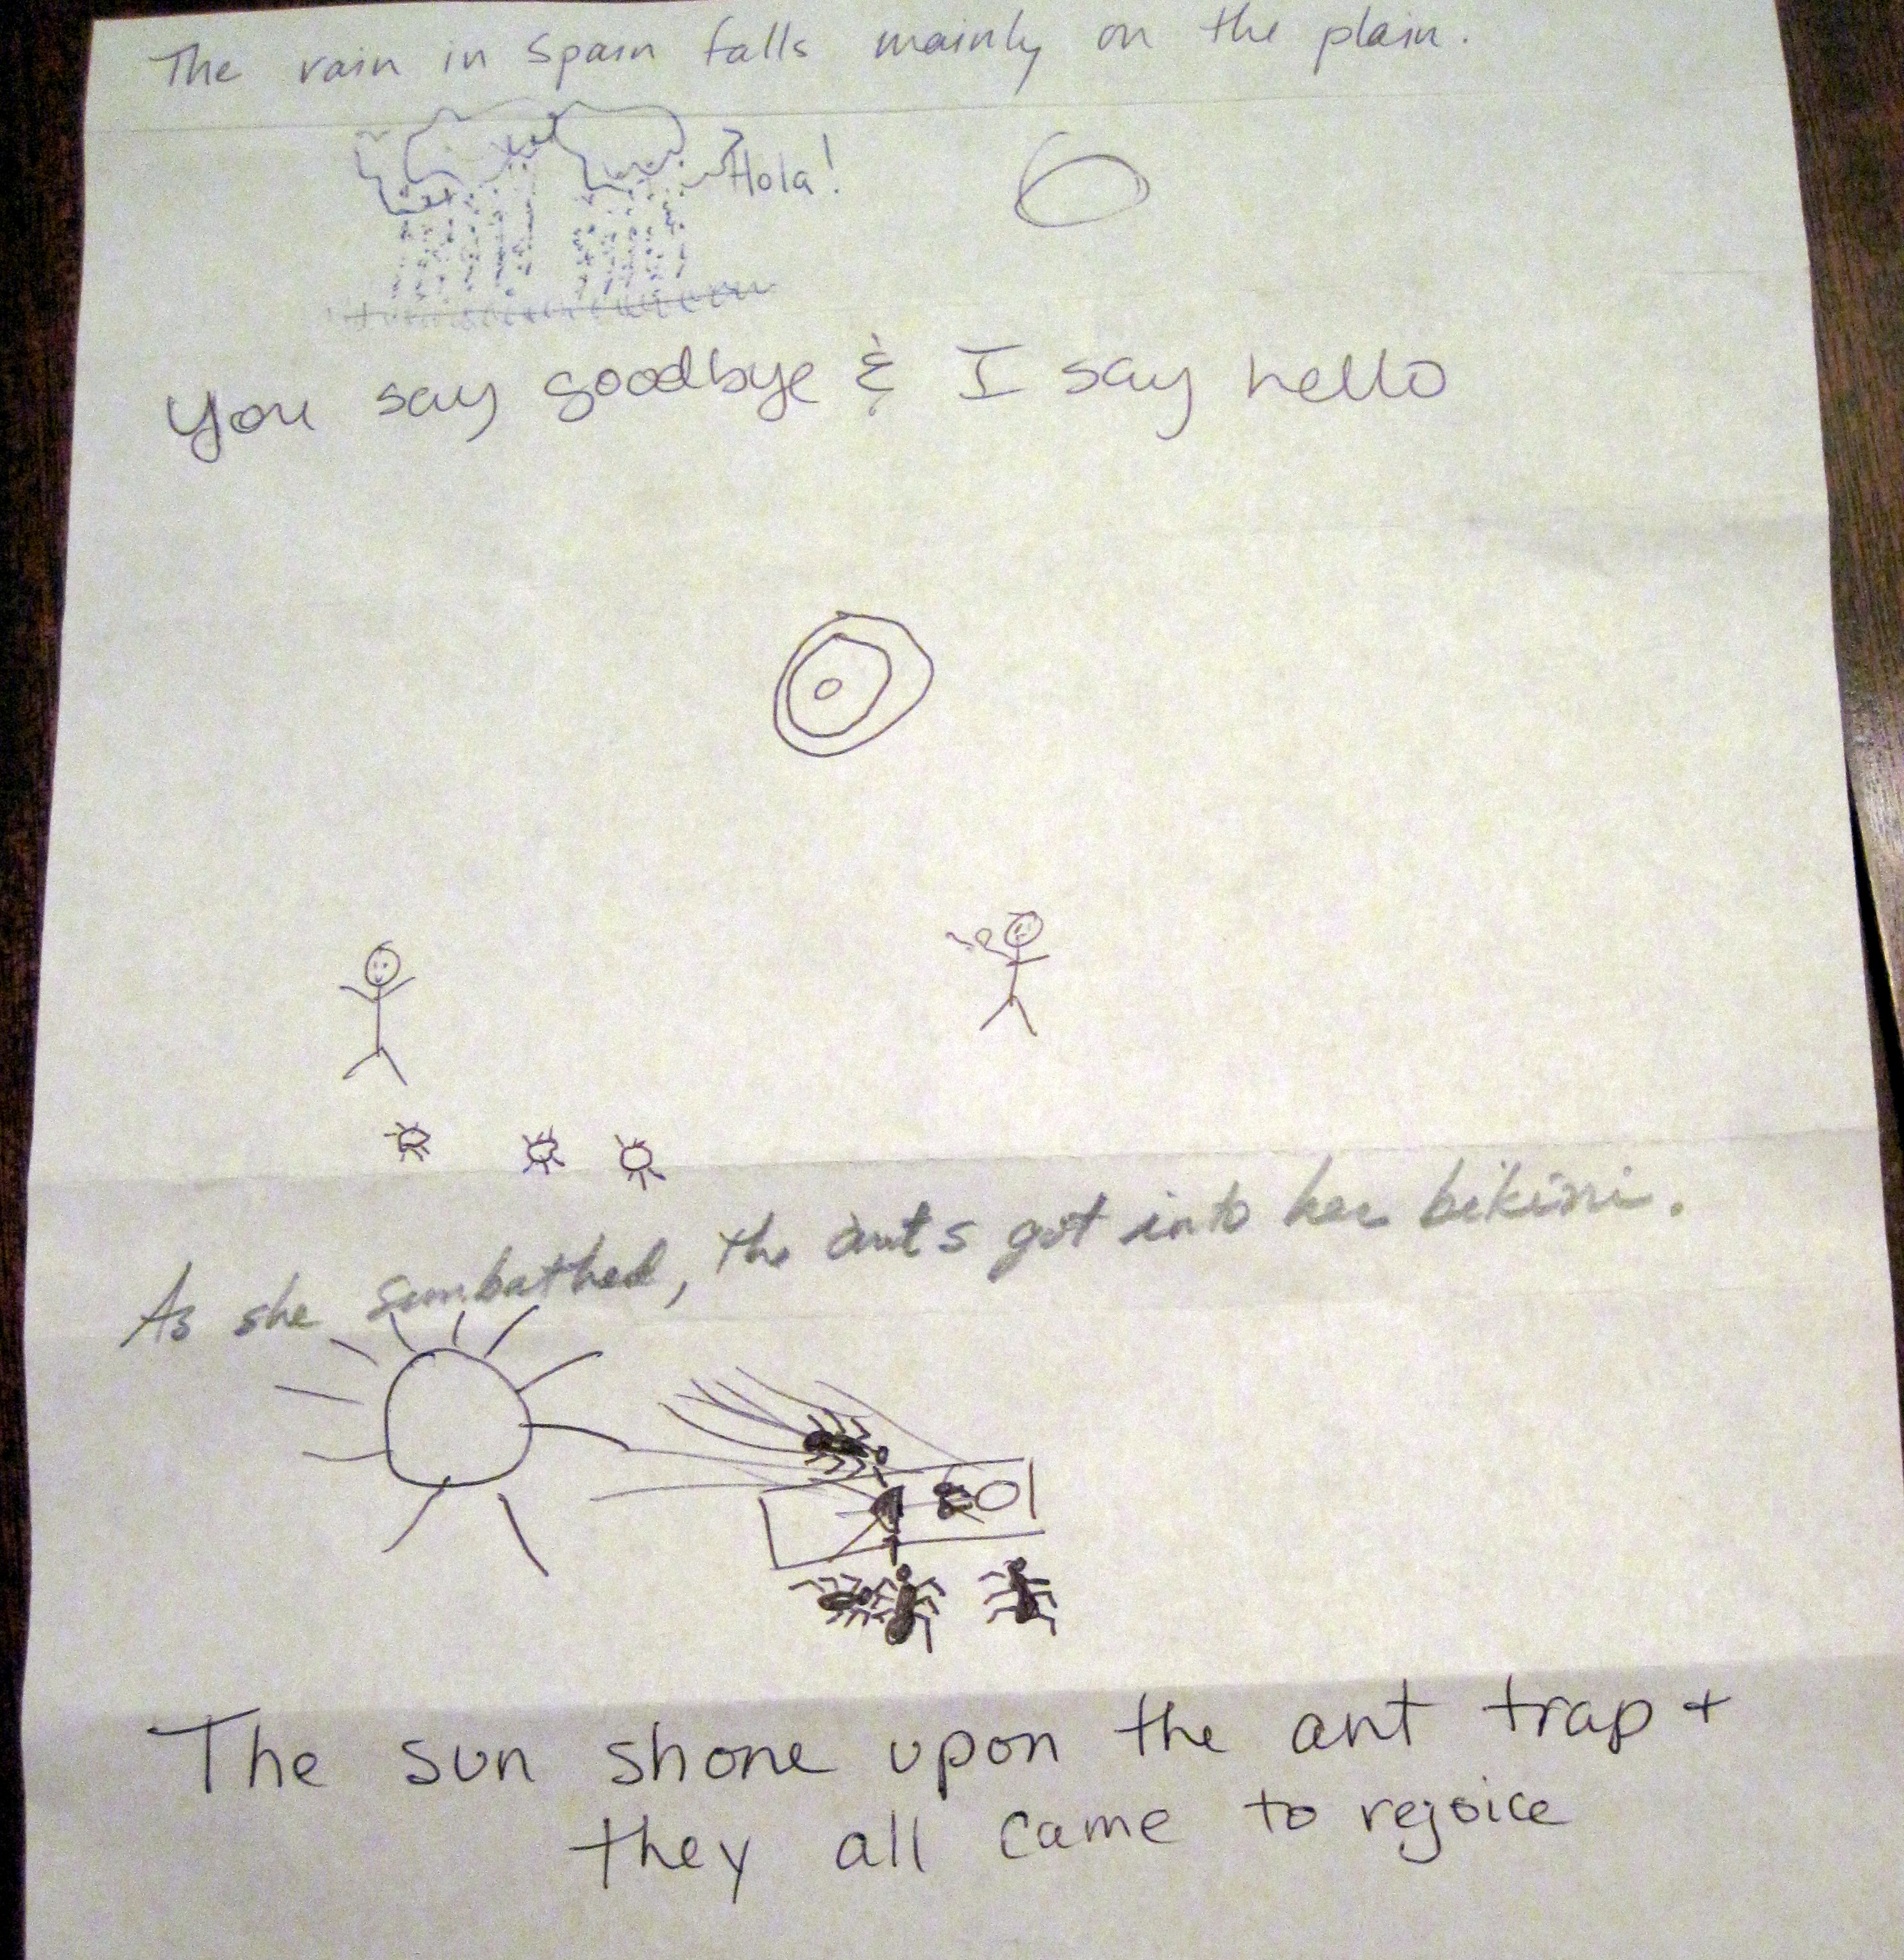 The rain in Spain falls mainly on the plain.
Hola!
You say goodbye & I say hello
As she sunbathed, the ants got into her bikini.
The sun shone upon the ant trap +
they all came to rejoice